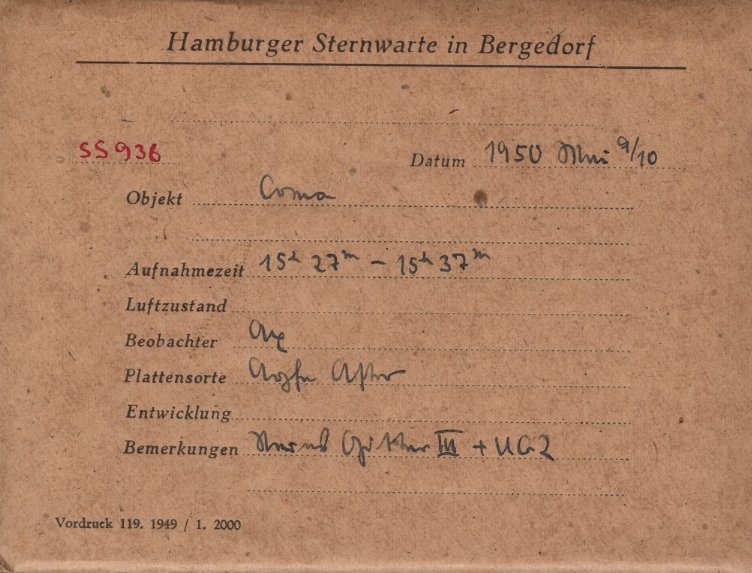 Hamburger Sternwarte in Bergedorf
SS936 Datum 1950 Mai 9/10
Objekt Coma
Aufnahmezeit 15h 27m – 15h 37m
Luftzustand
Beobachter
Plattensorte Agfa Astro
Entwicklung
Bemerkungen Gitter III + UG2
Vordruck 119. 1949 / 1. 2000